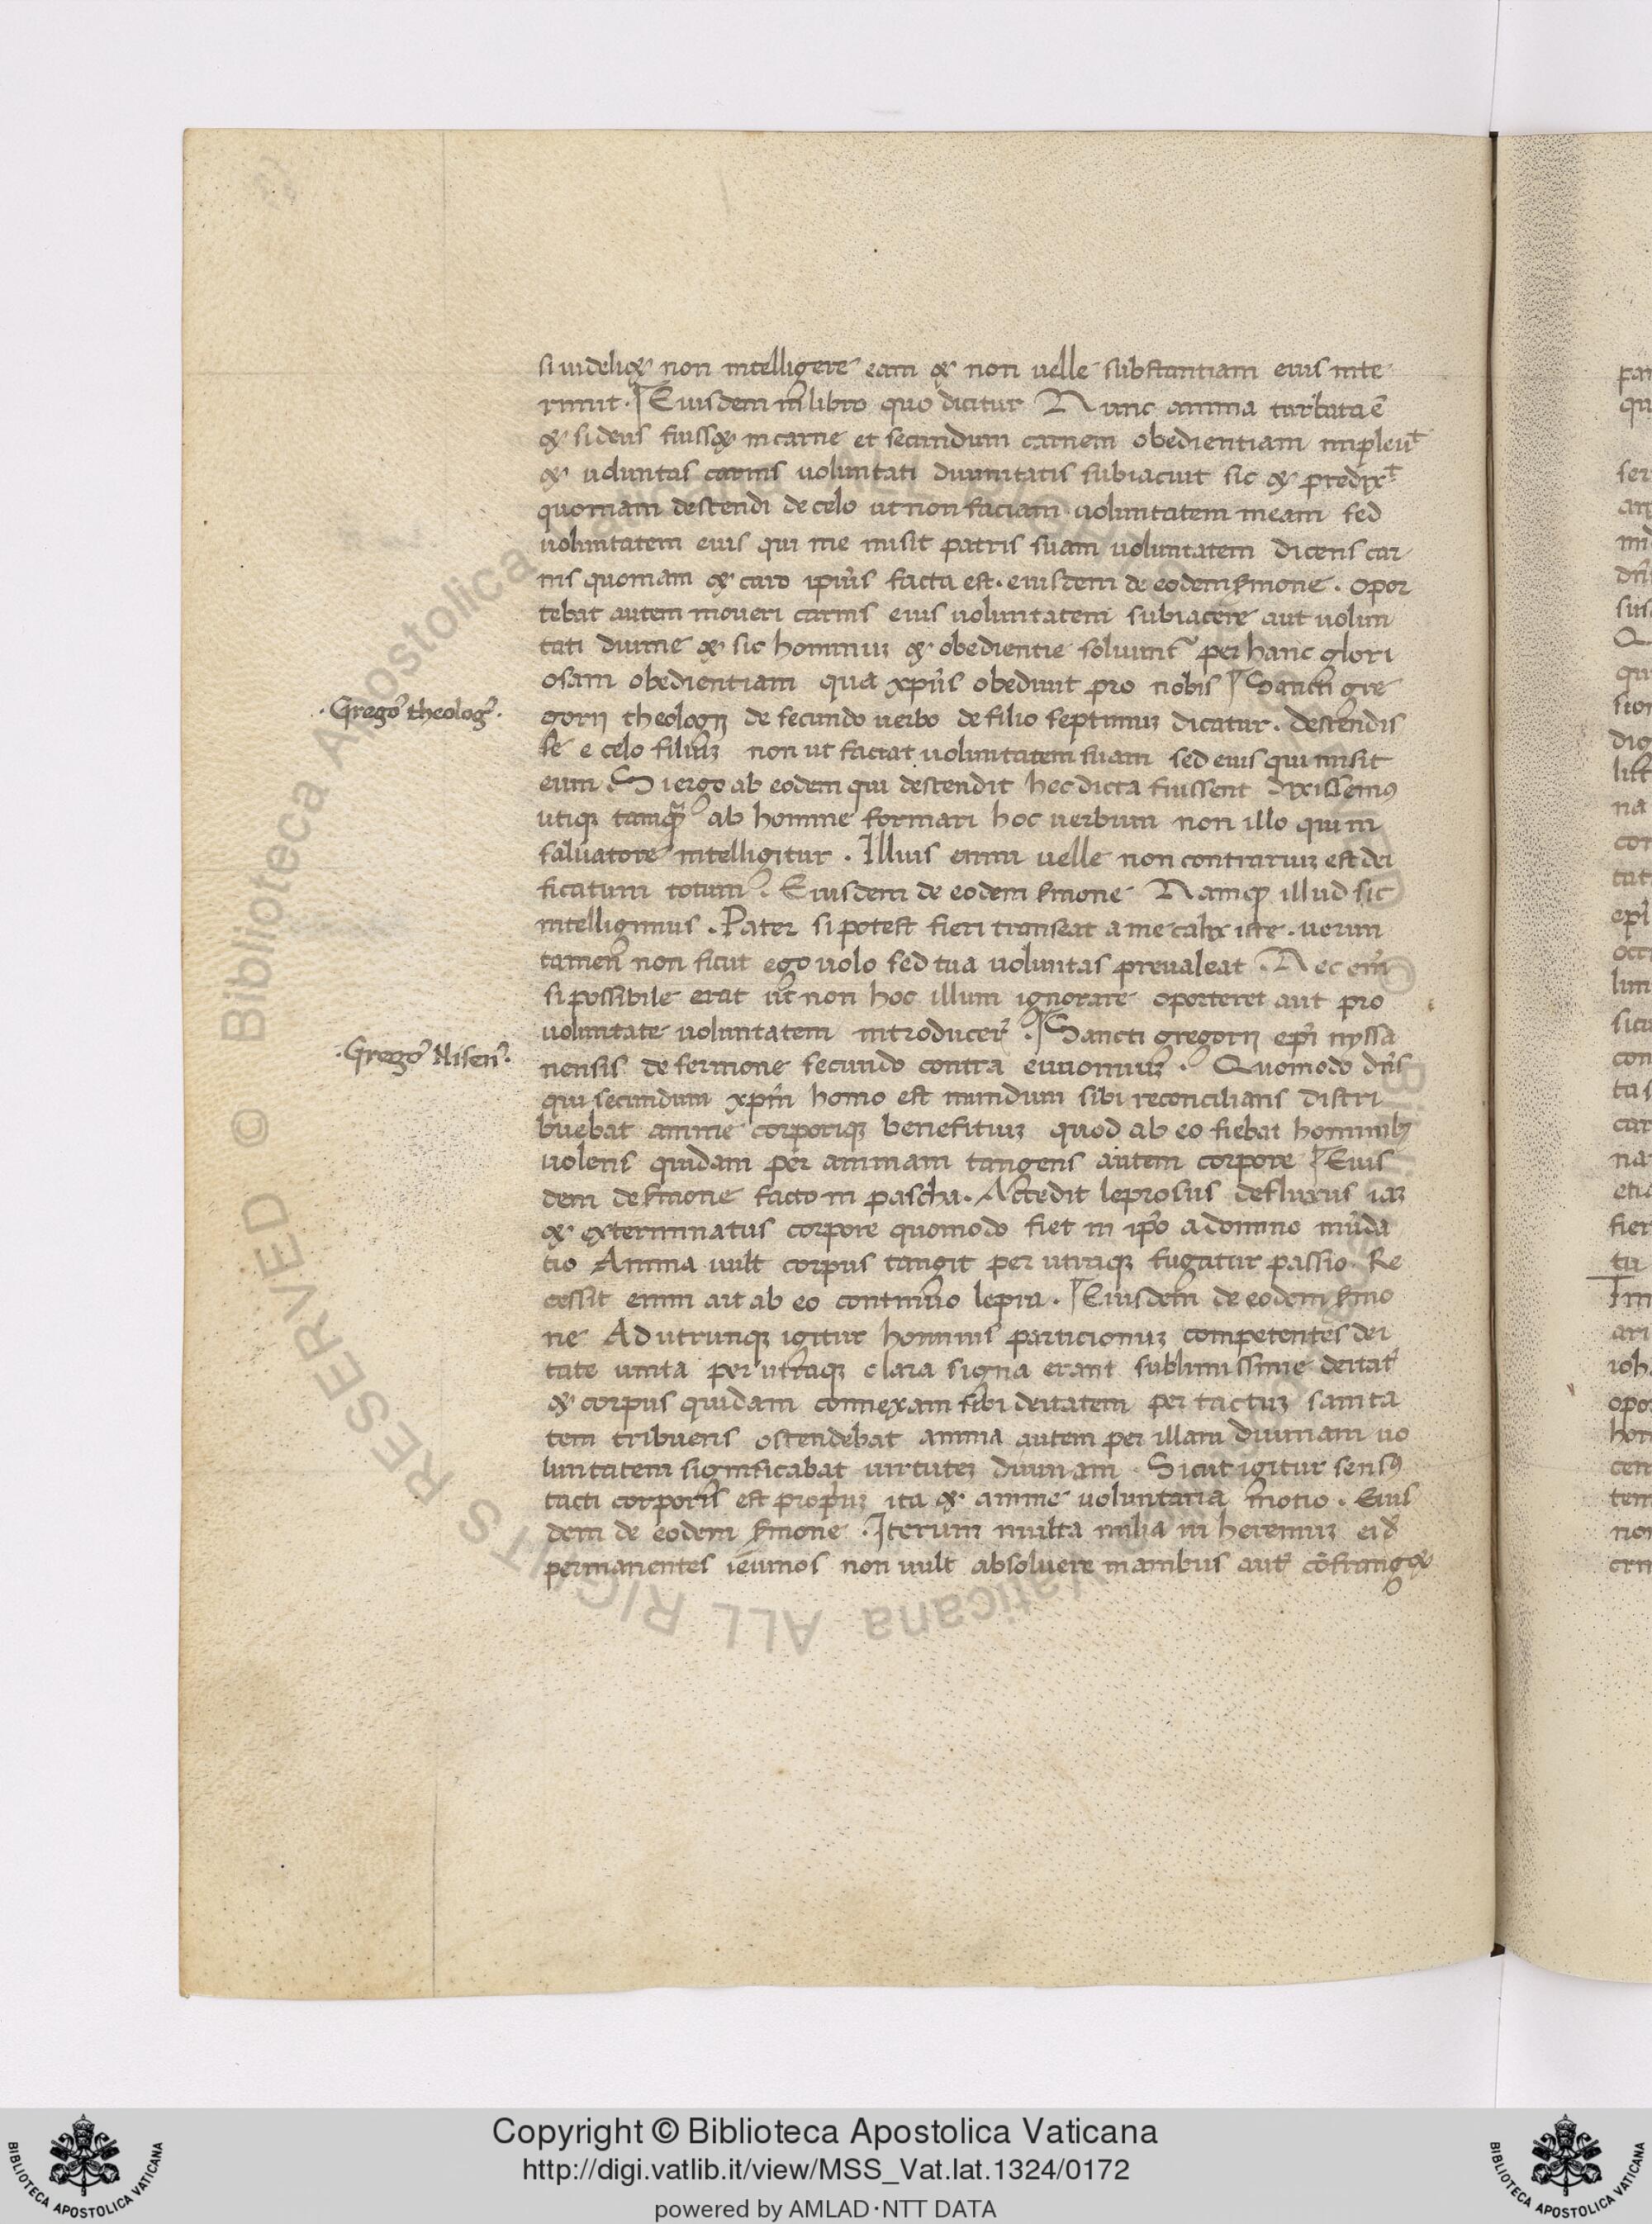 si videlicet non intelligere eam et non uelle substantiam eius inte
rimit. Eiusdem in libro quo dicitur Nunc anima turbata ē
et si deus fuisset in carne et secundum carnem obedientiam impleuᵗ
et uoluntas carnis uoluntati diuinitatis subiaciut sic et predixᵗ
quoniam descendi de celo ut non faciam uoluntatem meam sed
uoluntatem eius qui me misit patris suam uoluntatem dicens car
nis quoniam et caro ipius facta est. eiusdem de eodem smone. opor
tebat autem moueri carnis eius uoluntatem subiacere aut uolun
tati diuine et sic hominuz et obedientie soluunt per hanc glori
osam obedientiam qua xpūs obediuit pro nobis Sancti gre
·Grego᾽ theolog᾽·
gorij theologij de secundo uerbo de filio septimuz dicatur. descendis
se e celo filiuz non ut faciat uoluntatem suam sed eius qui misit
eum. Si ergo ab eodem qui descendit hec dicta fuissent dixissemꝰ
utiqz tamqꝫ ab homine formari hoc uerbum non illo qui in
saluatore intelligitur. Illius enim uelle non contrariuz est dei
ficatum totum. Eiusdem de eodem smone Namqꝫ illud sic
intelligimus. Pater si potest fieri transeat a me calix iste. uerun
tamen non sicut ego uolo sed tua uoluntas preualeat. Nec em̄
si possibile erat ut non hoc illum ignorare oporteret aut pro
uoluntate uoluntatem introducer᾽. Sancti gregorij epī nyssa
·Grego᾽ Nisen᾽·
nensis de sermone secundo contra eunomiuz. Quomodo dn̄s
qui secundum xpm̄ homo est mundum sibi reconcilians distri
buebat anime corporiqz benefitiuz quod ab eo fiebat hominibꝫ
uolens quidam per animam tangens autem corpore Eius
dem de smone facto in pascha. Accedit leprosus defluxus iaz
et exterminatus corpore quomodo fiet in ip̄o a domino mūda
tio Anima uult corpus tangit per utraqz fugatur passio. Re
cessit enim ait ab eo continuo lepra. Eiusdem de eodem smo
ne Ad utrunqz igitur hominis particionuz competentes dei
tate unita per utraqz clara signa erant sublimissime deitat᾽
et corpus quidam connexam sibi deitatem per tactuz sanita
tem tribuens ostendebat anima autem per illam diuinam uo
luntatem significabat uirtutez diuinam. Sicut igitur sensꝰ
tacti corporis est propriuz ita et anime uoluntaria motio. Eius
dem de eodem smone. Iterum multa milia in heremuz eid᾽
permanentes ieiunos non uult absoluere manibus aut᾽ cōfranget